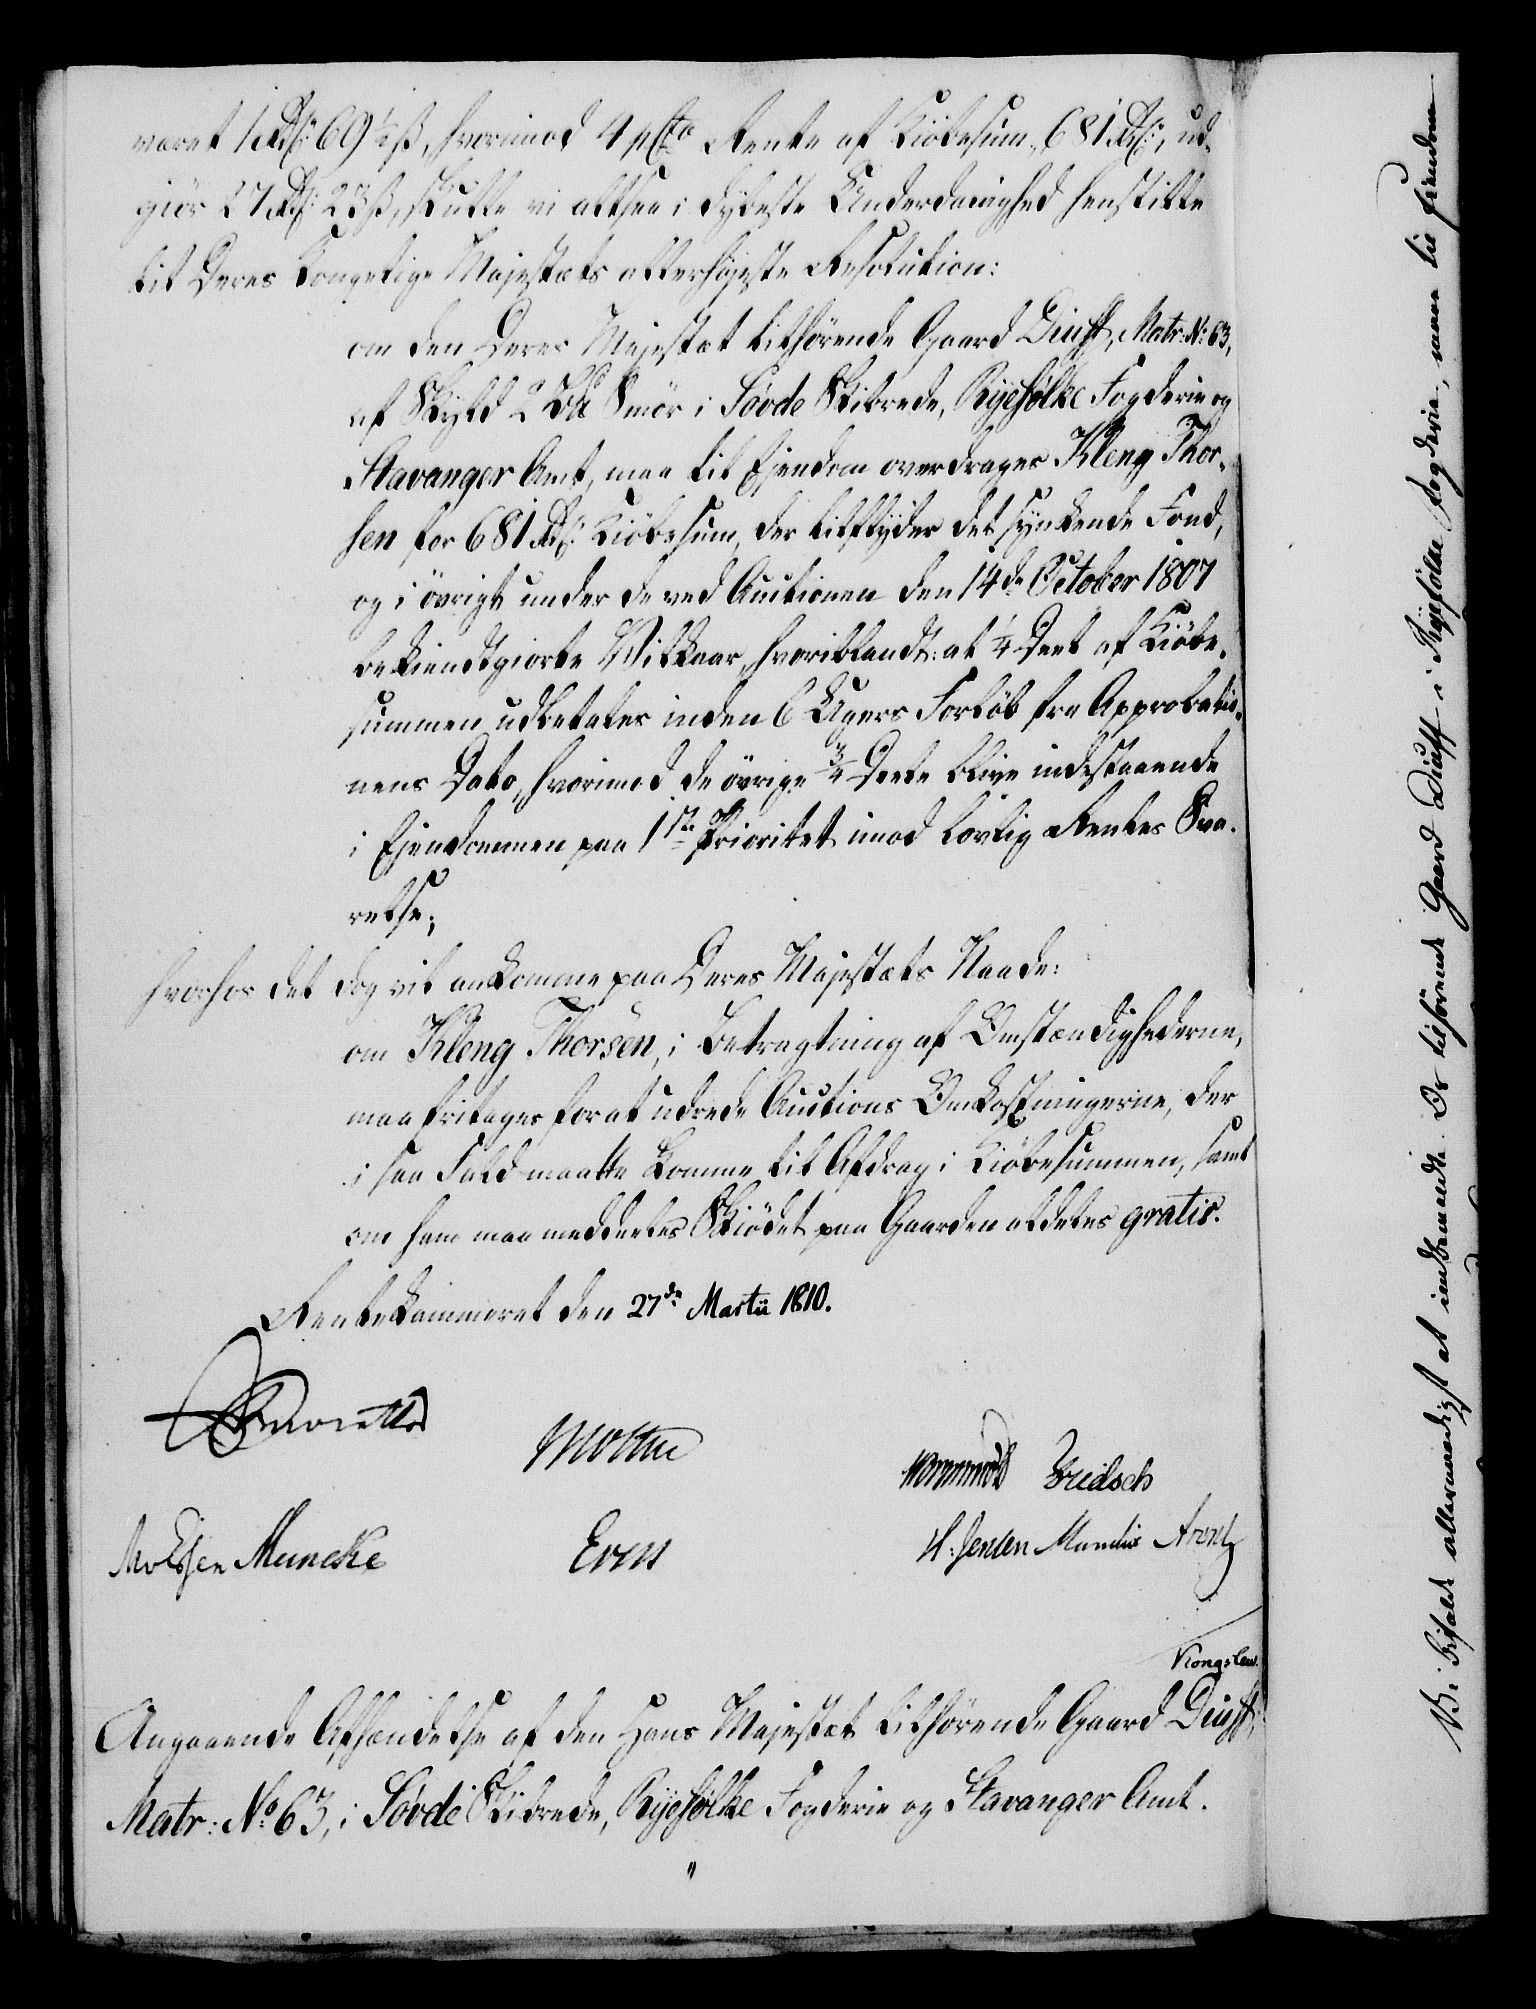 været 1 Rd: 69½ ß, hvorimod 4 pCto Rente af Kiöbesum, 681 Rd:, ud-
giör 27 Rd: 23 ß, skulle vi altsaa i dybeste Underdanighed henstille
til Deres Kongelige Majestæts allerhöjeste Resolution:
om den Deres Majestæt tilhörende Gaard Diuff, Matr: No: 63,
af Skyld 2 Smör i Sövde Skibrede, Ryefölke Fogderie og
Stavanger Amt, maa til Ejendom overdrages Kleng Thor-
sen for 681 Rd: Kiöbesum, der tilflyder det synkende Fond,
og i övrigt under de ved Auctionen den 14de October 1807
bekiendtgiorte Vilkaar, hvoriblandt: at ¼ Deel af Kiöbe-
summen udbetales inden 6 Ugers Forlöb fra Approbatio-
nens Dato, hvorimod de övrige ¾ Deele blive indestaaende
i Ejendommen paa 1ste Prioritet imod lovlig Rentes Sva-
relse;
hvorhos det dog vil ankomme paa Deres Majestæts Naade:
om Kleng Thorsen, i Betragtning af Omstændighederne,
maa fritages for at udrede Auctions Omkostningerne, der
i saa Fald maatte komme til Afdrag i Kiöbesummen, samt
om ham maa meddeeles Skiödet paa Gaarden aldeles gratis.
Rentekammeret den 27de Martii 1810.
Knuth
H: Jensen
Kongslew.
Angaaende Afhændelse af den Hans Majestæt tilhörende Gaard Diuff,
Matr: No: 63, i Sövde Skibrede, Ryefölke Fogderie og Stavanger Amt.
Vi bifalde allernaadigst at indbemeldte Os tilhörende Gaard Diuff i Ryefölke Fogderie, maa til Eiendom